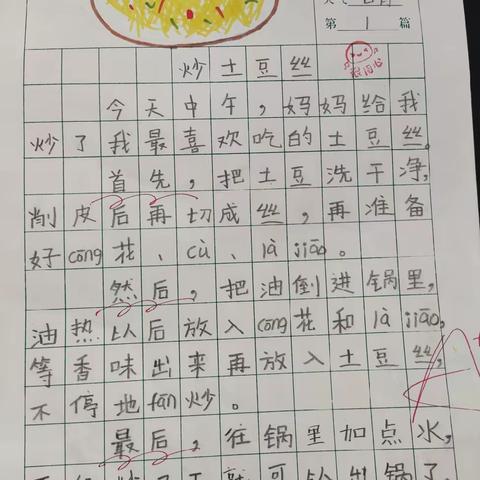 第 1 篇
炒土豆丝
今天中午,妈妈给我
炒了我最喜欢吃的土豆丝。
首先,把土豆洗干净,
削皮后再切成丝,再准备
好cōng花、cù、là jiāo。
然后,把油倒进锅里,
油热以后放入cōng花和là jiāo,
等香味出来再放入土豆丝,
不停地fān炒。
最后,往锅里加点水,
就可以出锅了